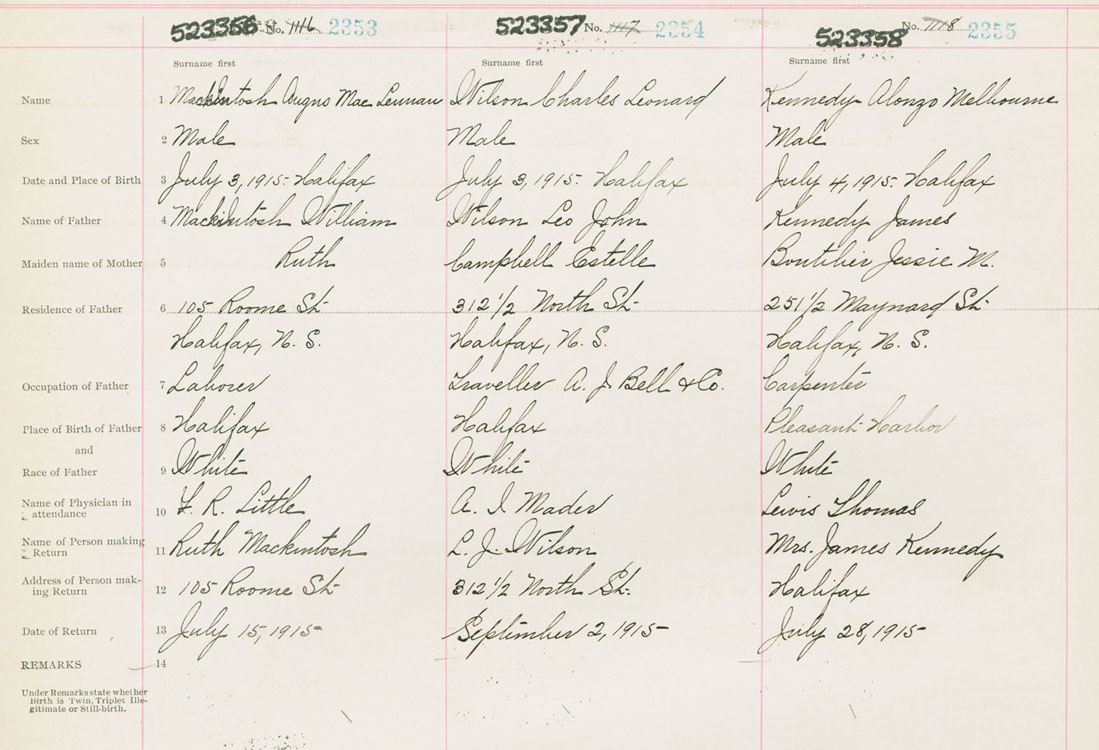 523356 No. 1116 2353 523357 No. 1117 2354 523358 No. 1118 2355
Surname first Surname first Surname first
Name 1 Mackintosh Angus Mac Lennan Wilson Charles Leonard Kennedy Alonzo Melbourne
Sex 2 Male Male Male
Date and Place of Birth 3 July 3, 1915 Halifax July 3, 1915 Halifax July 4, 1915 Halifax
Name of Father 4 Mackintosh William Wilson Leo John Kennedy James
Maiden name of Mother 5 Ruth Campbell Estelle Boutilier Jessie M.
Residence of Father 6 105 Roome St 312 1/2 North St 251 1/2 Maynard St
Halifax, N. S. Halifax, N. S. Halifax, N. S.
Occupation of Father 7 Laborer Traveller A. J. Bell & Co. Carpenter
Place of Birth of Father 8 Halifax Halifax Pleasant Harbor
and
Race of Father 9 White White White
Name of Physician in
attendance 10 F. R. Little A. I Mader Lewis Thomas
Name of Person making
Return 11 Ruth Mackintosh L. J. Wilson Mrs. James Kennedy
Address of Person mak-
ing Return 12 105 Roome St 312 1/2 North St. Halifax
Date of Return 13 July 15, 1915 September 2, 1915 July 28, 1915
REMARKS 14
Under Remarks state whether
Birth is Twin, Triplet Ille-
gitimate or Still-birth.